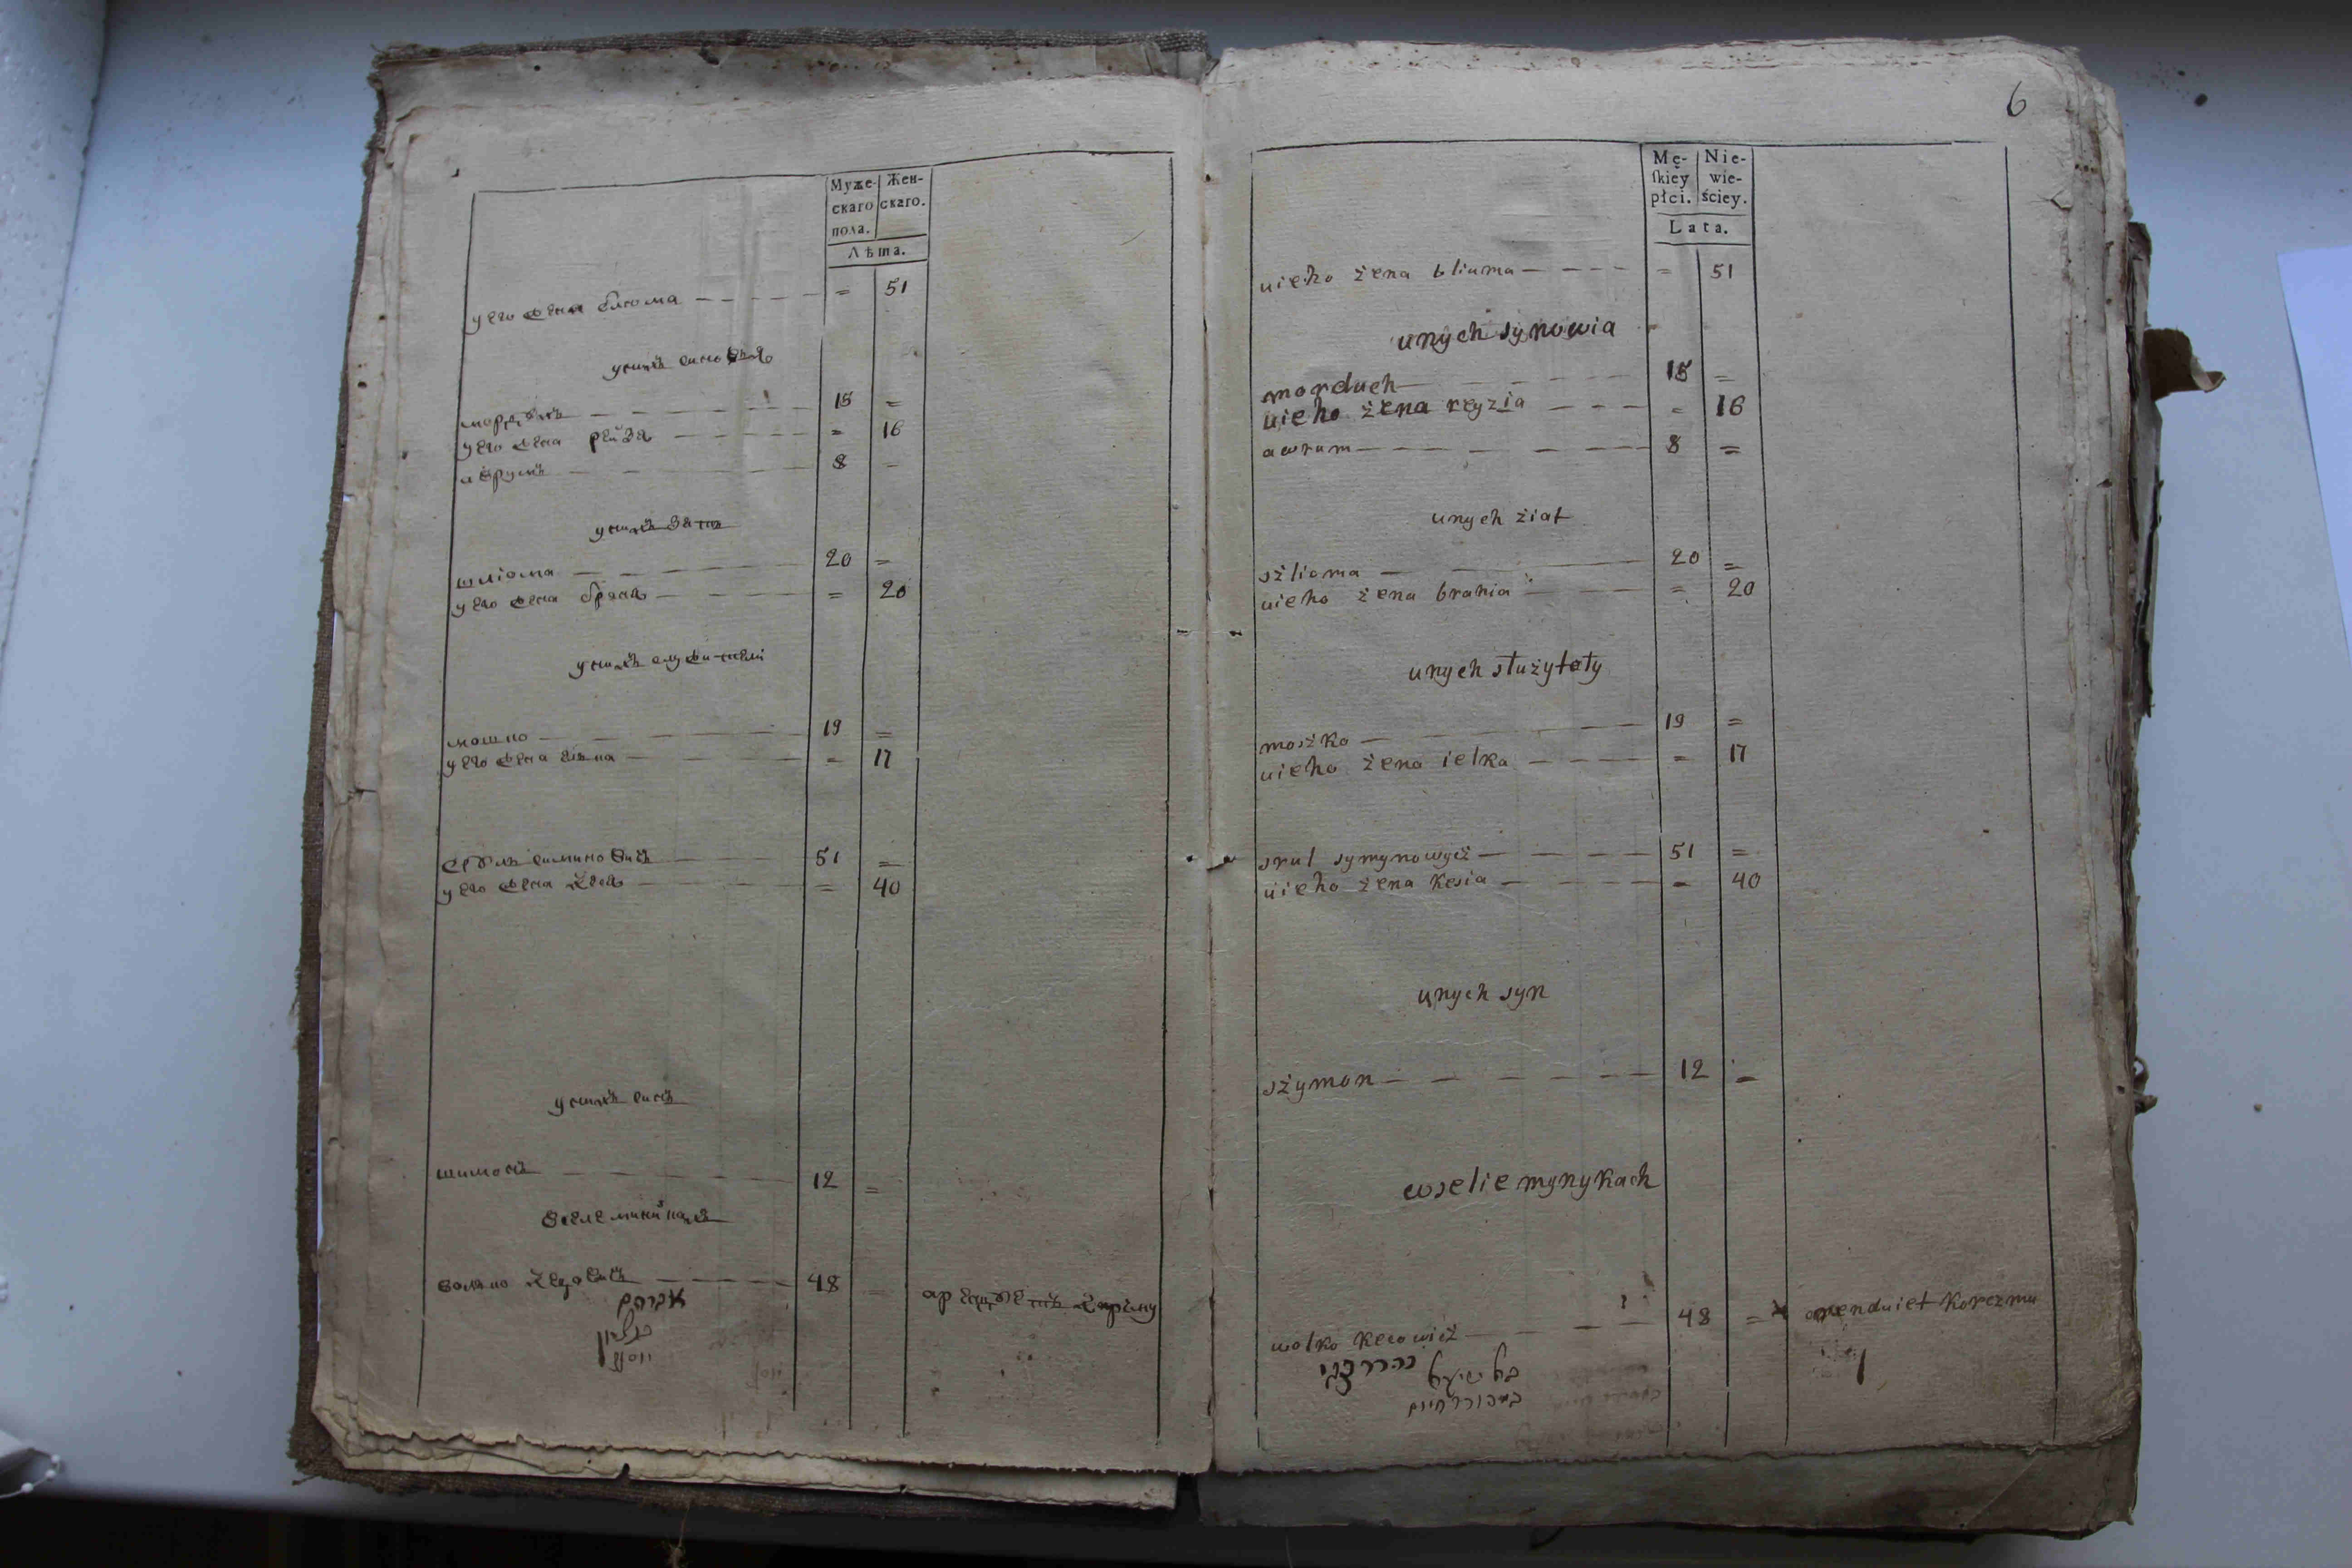 Муже-
скаго
пола.
Жен-
скаго.
Лѣта.
у его жена блюма — — = 51
у нихъ синовья
мордухъ — — 15 =
у его жена рейзя — — = 16
аврумъ — — 8 =
у нихъ зать
шліома — — 20 =
у его жена браня — — = 20
у нихъ служители
мошко — — 19 =
у его жена елька — — = 17
сруль симиновичъ — — 51 =
у его жена кеся — — = 40
у нихъ синъ
шимонъ — — 12 =
в селе минйкахъ
волько — — 48 = арендуетъ корчму
אברהם
יוסף
6
Mę-
ſkiey
płci.
Nie-
wie-
ściey.
Lata.
uieho żena bliuma — — = 51
unych synowia
morduch — — 15 =
uieho żena reyzia — — = 16
awrum — — 8 =
unych żiat
sżlioma — — 20 =
uieho żena brania — — = 20
unych służytely
moszko — — 19 =
uieho żena ielka — — = 17
srul symynowycż — — 51 =
uieho żena kesia — — = 40
unych syn
sżymon — — 12 =
wselie mynykach
wolko — — 48 = arenduiet korczmu